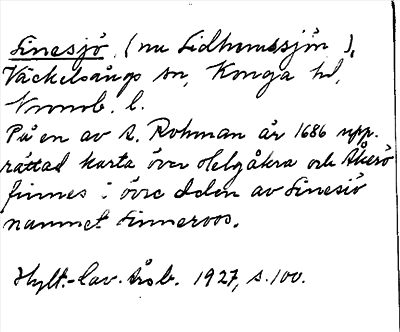 Sinesjö, (nu Lidhemssjön),
Väckelsångs sn, Konga hd,
Kronob. l.
På en av S. Rohman år 1686 upp-
rättad karta över Helgåkra och Åkerö
finnes i övre delen av Sinesiö
namnet Sinneroos.
Hylt.-Cav. årsb. 1927, s. 100.